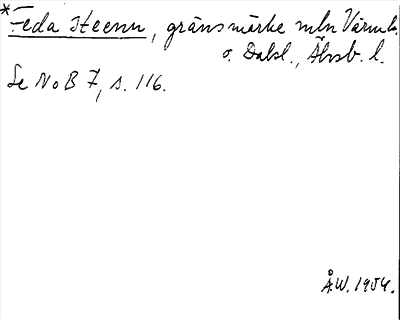 *Feda Steenn, gränsmärke mln Värml.
o. Dalsl., Älvsb. l.
Se NoB 7, s. 116.
Å.W. 1954.